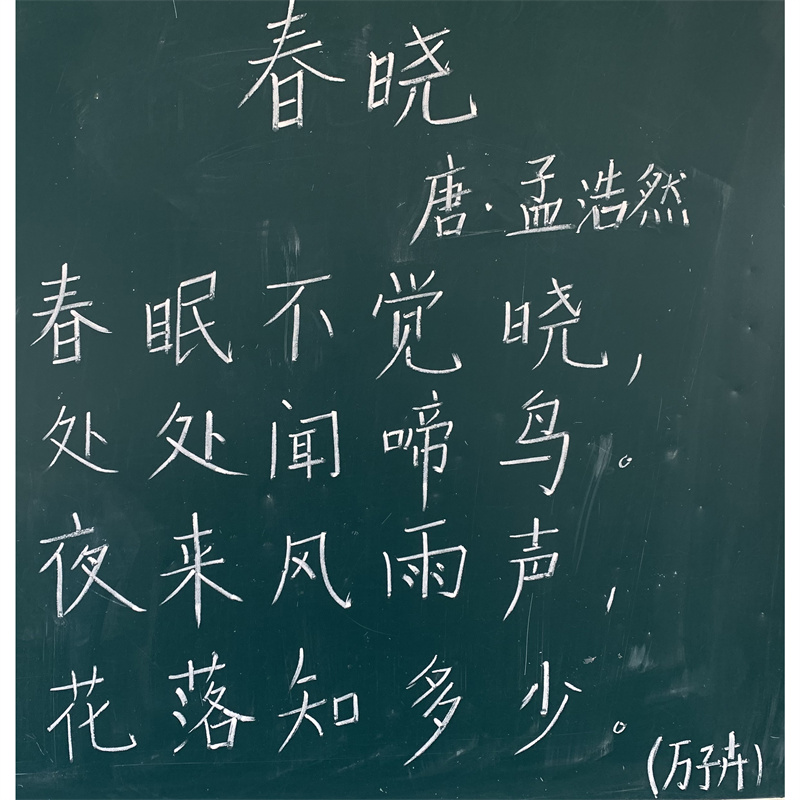 春晓
唐·孟浩然
春眠不觉晓，
处处闻啼鸟。
夜来风雨声，
花落知多少。
(万子卉)